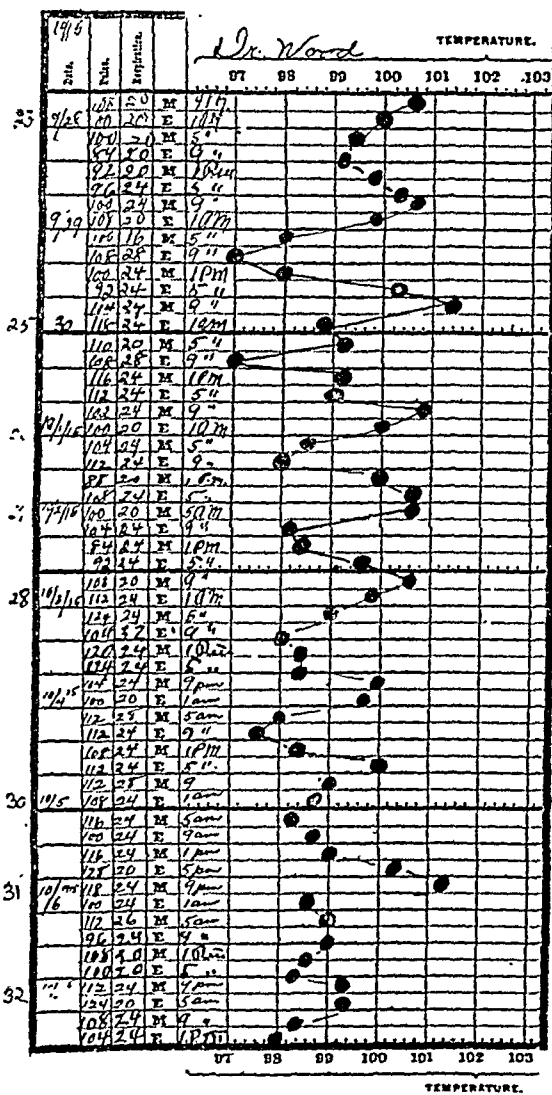 1915 Dr. Wood TEMPERATURE.
Date. Pulse. Respiration. 97 98 99 100 101 102 103
M
9/28 100 20 E
100 20 M 5 "
84 20 E 9 "
92 20 M
96 24 E 5 "
100 24 M 9 "
9/29 108 20 E 1am
100 16 M 5 "
108 28 E 9 "
100 24 M 1PM
92 24 E 5 "
114 24 M 9 "
25 30 118 24 E 1am
110 20 M 5 "
108 28 E 9 "
116 24 M 1PM
112 24 E 5 "
102 24 M 9 "
10/1/15 100 20 E 1am
104 24 M 5 "
112 24 E 9 "
88 20 M 1 P.m.
108 24 E 5 "
100 20 M 5am
104 24 E 9 "
84 24 M 1PM
92 24 E 5 "
108 20 M 9 "
28 10/3/15 112 24 E 1am
124 24 M 5 "
104 32 E 9 "
120 24 M
124 24 E 5 "
104 24 M 9pm
10/4 15 100 20 E 1am
112 28 M 5am
112 24 E 9 "
108 24 M 1PM
112 24 E 5 "
112 28 M 9
30 10/5 108 24 E 1am
116 24 M 5am
100 24 E 9am
116 24 M 1pm
128 20 E 5pm
31 118 24 M 9pm
10/6 100 24 E 1am
112 26 M 5am
96 24 E
108 20 M
100 20 E 5 "
32 112 24 M
124 20 E 5am
108 24 M 9 "
104 24 E 1PM
97 98 99 100 101 102 103
TEMPERATURE.